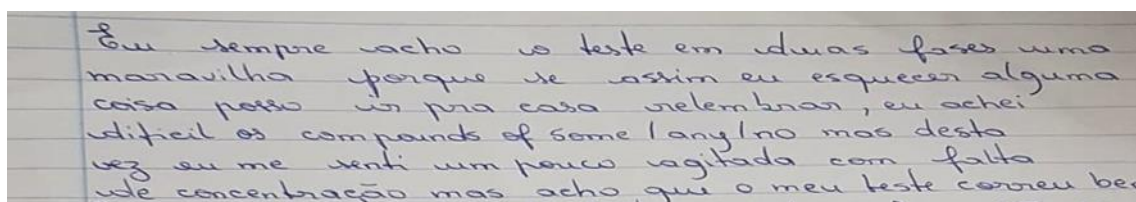 Eu sempre acho o teste em duas fases uma
maravilha porque se assim eu esquecer alguma
coisa posso ir pra casa relembrar, eu achei
dificil os compounds of some/any/no mas desta
vez eu me senti um pouco agitada com falta
de concentração mas acho que o meu teste correu be